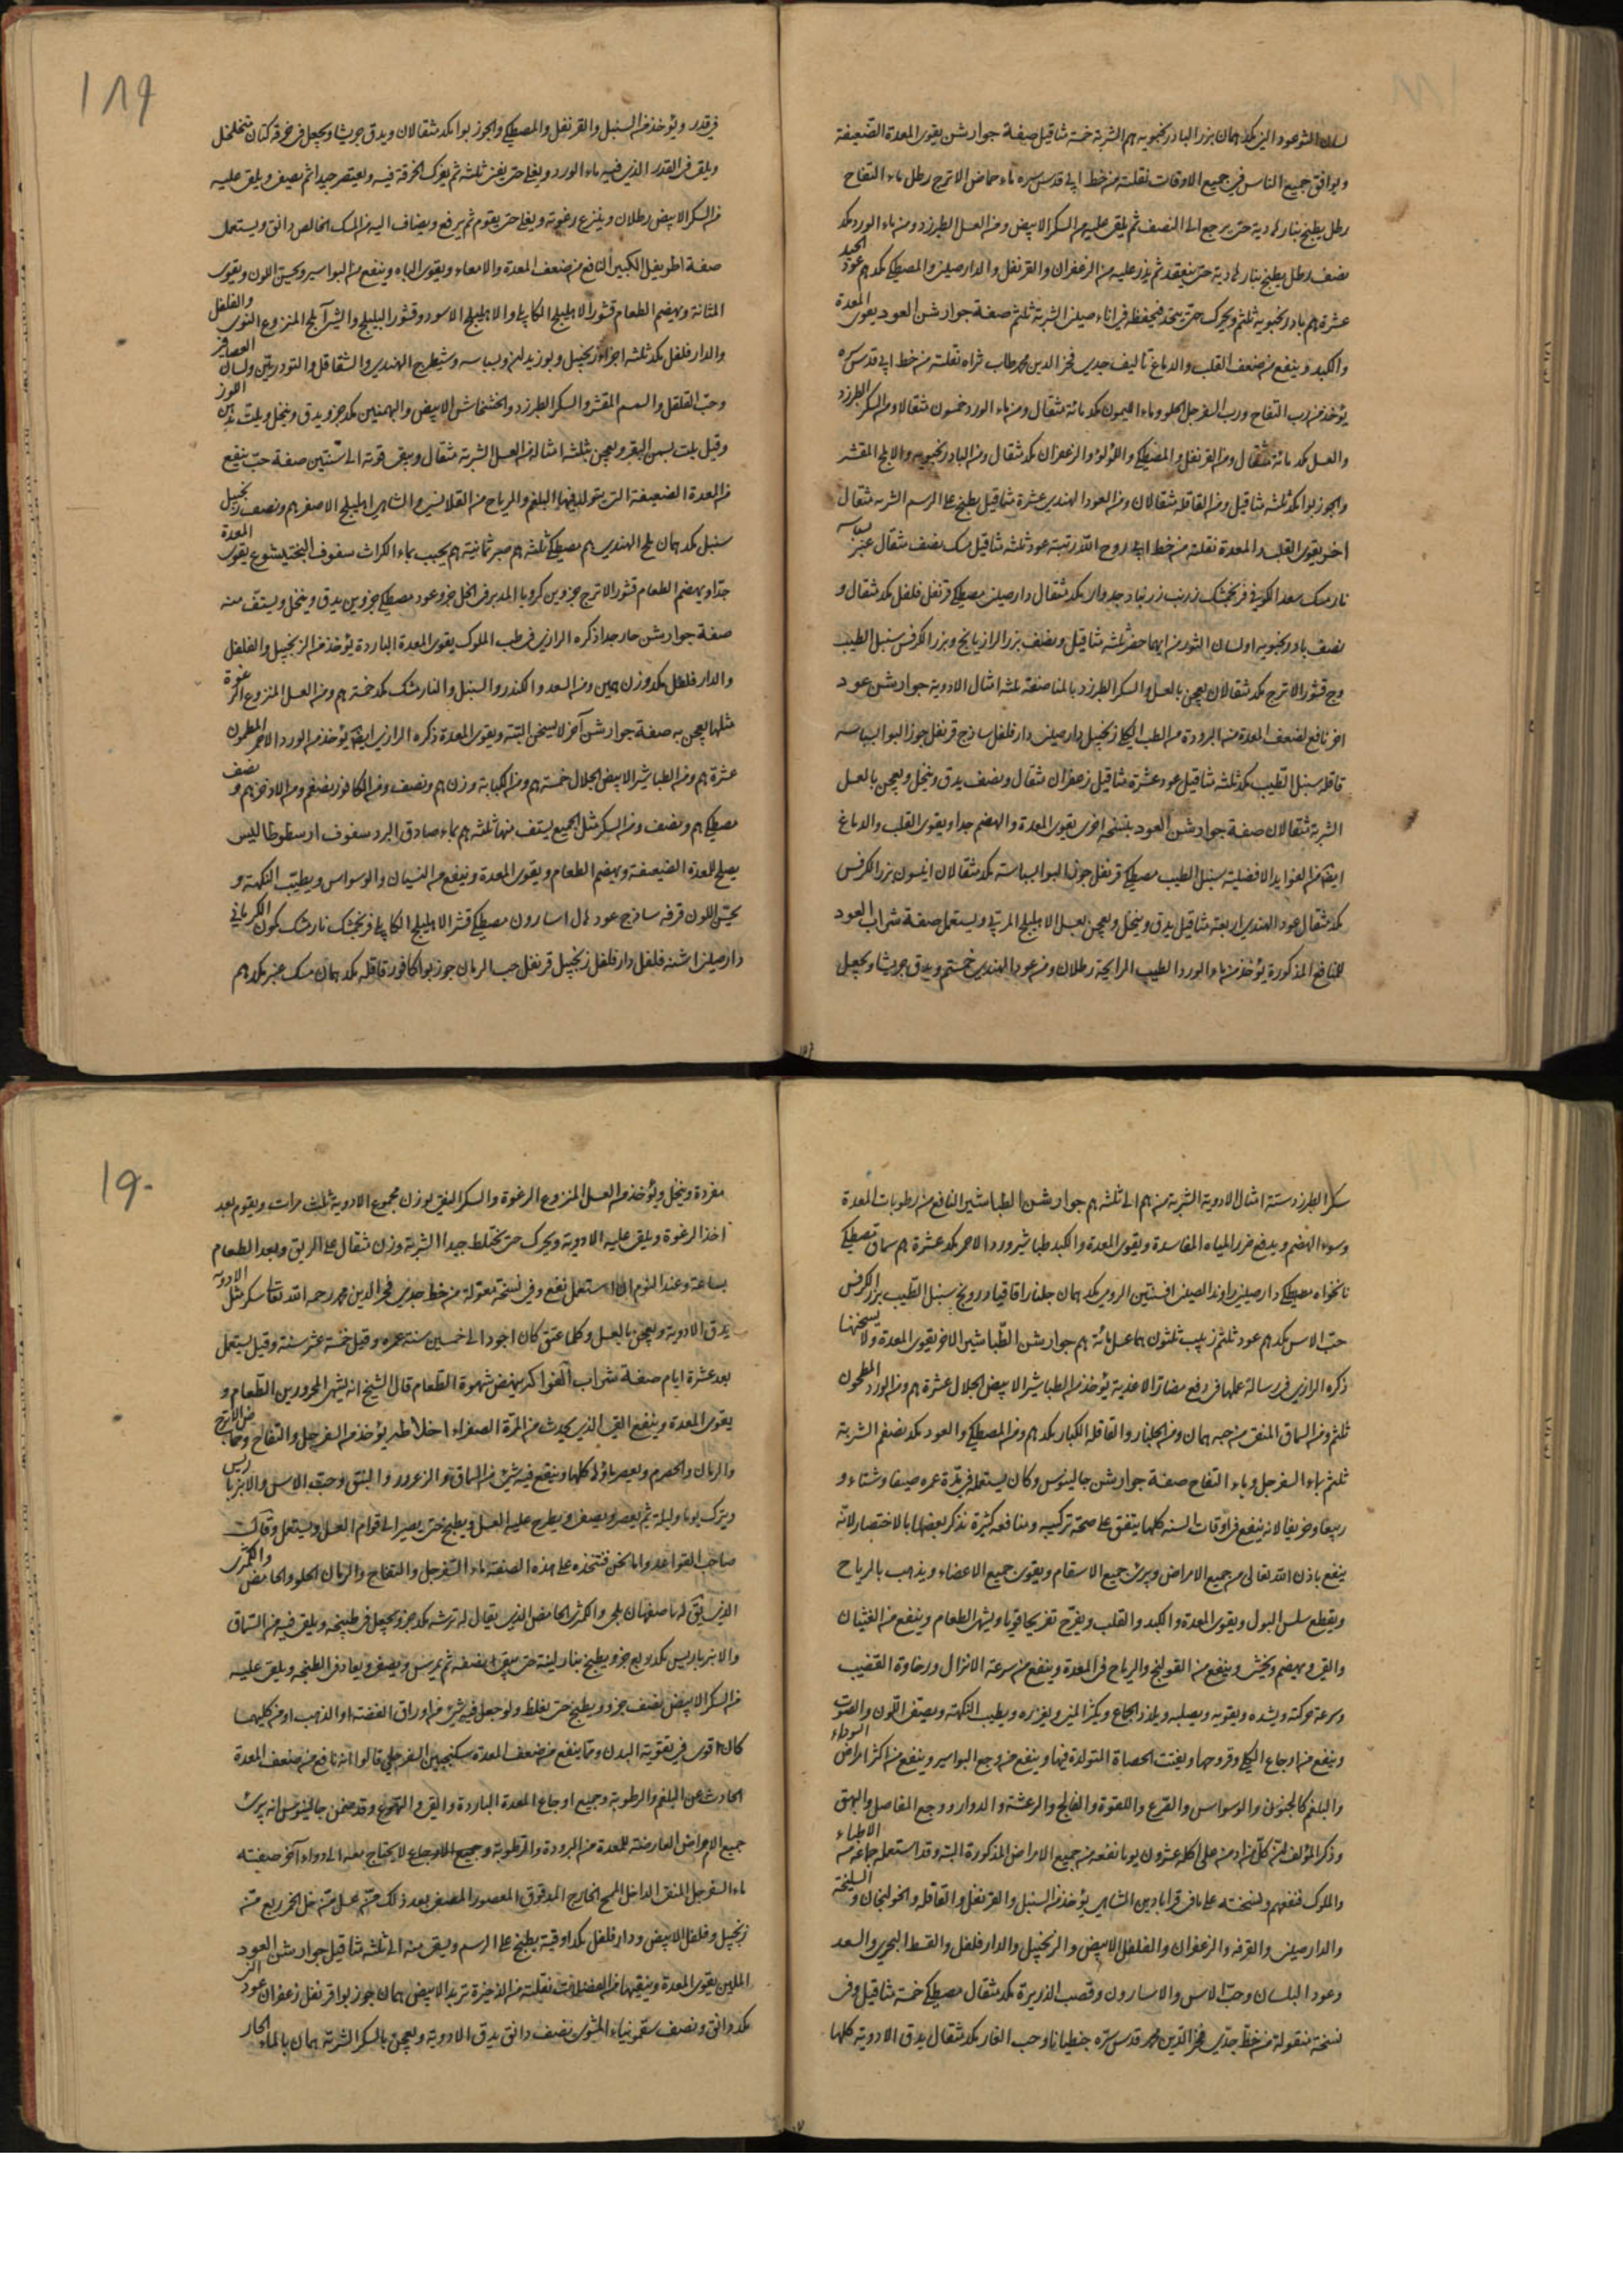 لسان الثور عود الني مكد همان بزر البادرنجبويه هم الشربة خمسة مثاقيل صفة جوارشن يقوى المعدة الضعيفة
ويوافق جميع الناس في جميع الاوقات نقلته من خط ابي قدس سره ماء حماض الاترج رطل ماء التفاح
رطل يطبخ بنار لادية حتى يرجع الى النصف ثم يلقى عليه من السكر الابيض ومن العسل الطبرزد ومن ماء الورد مكد
نصف رطل يطبخ بنار لادية حتى ينعقد ثم يذر عليه من الزعفران والقرنفل والدارصيني والمصطكي مكد هم عود الجيد
عشرة هم بادرنجبويه ثلثم ويحرك حتى يتحد فيحفظ في اناء صيني الشربة ثلثم صفة جوارشن العود يقوى المعدة
والكبد وينفع من ضعف القلب والدماغ تاليف جدي فخر الدين محمد طاب ثراه نقلته من خط ابي قدس سره
يؤخذ من رب التفاح ورب السفرجل الحلو وماء الليمون مكد مائة مثقال ومن ماء الورد خمسون مثقالا ومن السكر الطبرزد
والعسل مكد مائة مثقال ومن القرنفل والمصطكي واللؤلؤ والزعفران مكد مثقال ومن البادرنجبويه والابلج المقشر
والجوز بوا مكد ثلثه مثاقيل ومن القاقله مثقالان ومن العود الهندي عشرة مثاقيل يطبخ على الرسم الشربه مثقال
اخر يقوى القلب والمعدة نقلته من خط ابي روح الله رتبته عود ثلثه مثاقيل مسك نصف مثقال عنبر بسباسه
نارمسك سعد الكوفي فرنجمشك زرنب زرنباد جدوار مكد مثقال دارصيني مصطكي قرنفل فلفل مكد مثقال و
نصف بادرنجبويه اولسان الثور من ايهما حضر ثلثه مثاقيل ونصف بزر الرازيانج وبزر الكرفس سنبل الطيب
وج قشور الاترج مكد مثقالان يعجن بالعسل والسكر الطبرزد بالمناصفة ثلثه امثال الادوية جوارشن عود
اخر نافع لضعف المعدة من البرودة من الطب الكي زنجبيل دارصيني دارفلفل ساذج قرنفل جوز البوا البسباسه
قاقله سنبل الطيب مكد ثلثه مثاقيل عود عشرة مثاقيل زعفران مثقال ونصف يدق وينخل ويعجن بالعسل
الشربة مثقالان صفة جوارشن العود بنسخه اخرى يقوى المعدة والهضم جدا ويقوى القلب والدماغ
ايضا من الفوايد الافضلية سنبل الطيب مصطكي قرنفل جوز البوا البسباسة مكد مثقالان انيسون بزر الكرفس
مكد مثقال عود الهندي اربعة مثاقيل يدق وينخل ويعجن بعسل الاهليلج المربي ويستعمل صفة شراب العود
للمنافع المذكورة يؤخذ من ماء الورد الطيب الرايحة رطلان ومن عود الهندي خمستم ويدق جريشا ويجعل
١٨٩
في قدر ويؤخذ من السنبل والقرنفل والمصطكي والجوز بوا مكد مثقالان ويدق جريشا ويجعل في خرقة كتان متخلخل
ويلقى في القدر الذي فيه ماء الورد ويغلى حتى يفنى ثلثه ثم يمرك الخرقة فيه ويعتصر جيدا ثم يصفى ويلقى عليه
من السكر الابيض رطلان وينزع رغوته ويغلى حتى يقوم ثم يرفع ويضاف اليه من المسك الخالص دانق ويستعمل
صفة اطريفل الكبير النافع من ضعف المعدة والامعاء ويقوى الباه وينفع من البواسير ويحسن اللون ويقوى
المثانة ويهضم الطعام قشور الاهليلج الكابلي والاهليلج الاسود وقشور البليلج والشير آملج المنزوع النوى والفلفل
والدارفلفل مكد ثلثه اجزاء زنجبيل وبوزيدان وبسباسه وشيطرج الهندي والشقاقل والتودريين ولسان العصافير
وحب القلقل والسمسم المقشر والسكر الطبرزد والخشخاش الابيض والبهمنين مكد جزو يدق وينخل ويلت بدهن اللوز
وقيل يلت بسمن البقر ويعجن بثلثه امثاله من العسل الشربة مثقال ويبقى قوته الى سنتين صفة حب ينفع
من المعدة الضعيفة التي يتولد فيها البلغم والرياح من القلانسي والشاهي اهليلج الاصفر هم ونصف زنجبيل
سنبل مكد همان ملح الهندي هم مصطكي ثلثه هم صبر ثمانية هم يحبب بماء الكراث سفوف البختيشوع يقوى المعدة
جدا ويهضم الطعام قشور الاترج جزوين كرويا المدبر في الخل جزو عود مصطكي جزوين يدق وينخل ويستف منه
صفة جوارشن حار جدا ذكره الرازي في طب الملوك يقوى المعدة الباردة يؤخذ من الزنجبيل والفلفل
والدارفلفل مكد وزن همين ومن السعد والكندر والسنبل والنارمشك مكد خمسة هم ومن العسل المنزوع الرغوة
مثلها يعجن به صفة جوارشن آخر لا يسخن البتة ويقوى المعدة ذكره الرازي ايضا يؤخذ من الورد الاحمر المطحون
عشرة هم ومن الطباشير الابيض الجلال خمسة هم ومن الكبابة وزن هم ونصف ومن الكافور نصفم ومن الاذخر هم و نصف
مصطكي هم ونصف ومن السكر مثل الجميع يستف منها ثلثه هم بماء صادق البرد سفوف ارسطوطاليس
يصلح للمعدة الضعيفة ويهضم الطعام ويقوى المعدة وينفع من النسيان والوسواس ويطيب النكهة و
يحسن اللون قرفه ساذج عود هال اسارون مصطكي قشر الاهليلج الكابلي فرنجمشك نارمشك كمون الكرماني
دارصيني اشنه فلفل دارفلفل زنجبيل قرنفل حب الرمان جوز بوا كافور قاقله مكد همان مسك عنبر مكد هم
سكر الطبرزد ستة امثال الادوية الشربة من هم الى ثلثه هم جوارشن الطباشير النافع من رطوبات المعدة
وسوء الهضم ويدفع ضرر المياه الفاسدة ويقوى المعدة والكبد طباشير ورد الاحمر مكد عشرة هم سماق مصطكي
نانخواه مصطكي دارصيني راوند الصيني افسنتين الرومي مكد همان جلنار اقاقيا درونج سنبل الطيب بزر الكرفس
حب الاس مكد هم عود ثلثم زبيب ثلثون هما عسل مائة هم جوارشن الطباشير الاخر يقوى المعدة ولا يسخنها
ذكره الرازي في رسالة عملها في دفع مضار الاغذية يؤخذ من الطباشير الابيض الجلال عشرة هم ومن الورد المطحون
ثلثم ومن السماق المنقى من حبه همان ومن الجلنار والقاقلة الكبار مكد هم ومن المصطكي والعود مكد نصفم الشربة
ثلثم بماء السفرجل وماء التفاح صفة جوارشن جالينوس وكان يستعمله في مدة عمره صيفا وشتاء و
ربيعا وخريفا لانه ينفع في اوقات السنه كلها يتفق على صحة تركيبه ومنافعه كثيرة نذكر بعضها بالاختصار لانه
ينفع باذن الله تعالى من جميع الامراض ويبرئ جميع الاسقام ويقوى جميع الاعضاء ويذهب بالرياح
ويقطع سلس البول ويقوى المعدة والكبد والقلب ويفرح تفريحا قويا ويشهى الطعام وينفع من الغثيان
والقيء ويهضم ويخشي وينفع من القولنج والرياح في المعدة وينفع من سرعة الانزال ورخاوة القضيب
وسرعة حركته ويشده ويقويه ويصلبه ويلذذ الجماع ويكثر المني ويغزره ويطيب النكهة ويصفى اللون والصوت
وينفع من اوجاع الكلى وقروحها ويفتت الحصاة المتولدة فيها وينفع من وجع البواسير وينفع من اكثر امراض السوداء
والبلغم كالجنون والوسواس والقرع واللقوة والفالج والرعشة والدوار ووجع المفاصل والبهق
وذكر المؤلف ان كل من ادمن على اكله عشرون يوما نفعه من جميع الامراض المذكورة البتة وقد استعمله جماعة من الاطباء
والملوك فنفعهم ونسخته على ما في قرابادين الشاهي يؤخذ من السنبل والقرنفل والقاقله والخولنجان والسليخة
والدارصيني والقرفه والزعفران والفلفل الابيض والزنجبيل والدارفلفل والقسط البحري والسعد
وعود البلسان وحب الاس والاسارون وقصب الذريرة مكد مثقال مصطكي خمسة مثاقيل وفي
نسخة منقولة من خط جدي فخر الدين محمد قدس سره جنطيانا وحب الغار مكد مثقال يدق الادوية كلها
١٩٠
مفردة وينخل ويؤخذ من العسل المنزوع الرغوة والسكر النقي بوزن مجموع الادوية ثلث مرات ويقوم بعد
اخذ الرغوة ويلقى عليه الادوية ويحرك حتى يختلط جيدا الشربة وزن مثقال على الريق وبعد الطعام
بساعة وعند النوم ان استعمل نفع وفي نسخة منقولة من خط جدي فخر الدين محمد رحمه الله تعالى سكر مثل الادوية
يدق الادوية ويعجن بالعسل وكلما عتق كان اجود الى خمسين سنة عمره وقيل خمسة عشر سنة وقيل يستعمل
بعد عشرة ايام صفة شراب الفواكه ينهض شهوة الطعام قال الشيخ انه يشهى المحرورين الطعام و
يقوى المعدة وينفع القي الذي يحدث من المرة الصفراء اخلاطه يؤخذ من السفرجل والتفاح وحماض الاترج
والرمان والحصرم ويعصر ماؤها كلها وينقع فيه شيء من السماق والزعرور والنبق وحب الاس والانبرباريس
ويترك يوما وليلة ثم يعصر ويصفى ويطرح عليه العسل ويطبخ حتى يصير الى قوام العسل ويستعمل وقال
صاحب القواعد واما نحن فنتخذه على هذه الصفة ماء السفرجل والتفاح والرمان الحلو والحامض والكمثرى
الذي يقال له باصفهان بلجي والكمثرى الحامض الذي يقال له ترشه مكد جزو يجعل في طنجير ويلقى فيه من السماق
والانبرباريس مكد ربع جزو يطبخ بنار لينة حتى يبقى نصفه ثم يمرس ويصفى ويعاد في الطنجير ويلقى عليه
من السكر الابيض نصف جزو ويطبخ حتى يغلظ ولو جعل فيه شيء من اوراق الفضة او الذهب او من كليهما
كان اقوى في تقوية البدن ومما ينفع من ضعف المعدة سكنجبين السفرجلي قالوا انه نافع من ضعف المعدة
الحادث عن البلغم والرطوبة وجميع اوجاع المعدة الباردة والقيء والتهوع وقد ضمن جالينوس انه يبرئ
جميع الامراض العارضة للمعدة من البرودة والرطوبة وجميع الاوجاع لا يحتاج معه الى دواء آخر صفته
ماء السفرجل المنقى الداخل الممح الخارج المدقوق المعصور المصفى بعد ذلك من عسل من خل الخمر ربع من
زنجبيل وفلفل الابيض ودارفلفل مكد اوقية يطبخ على الرسم ويسقى منه الى ثلثه مثاقيل جوارشن العود
الملين يقوى المعدة وينقيها من الفضلات نقلته من الذخيرة تربد الابيض همان جوز بوا قرنفل زعفران عود الني
مكد دانق ونصف سقمونياء المشوي نصف دانق يدق الادوية ويعجن بالسكر الشربة همان بالماء الحار